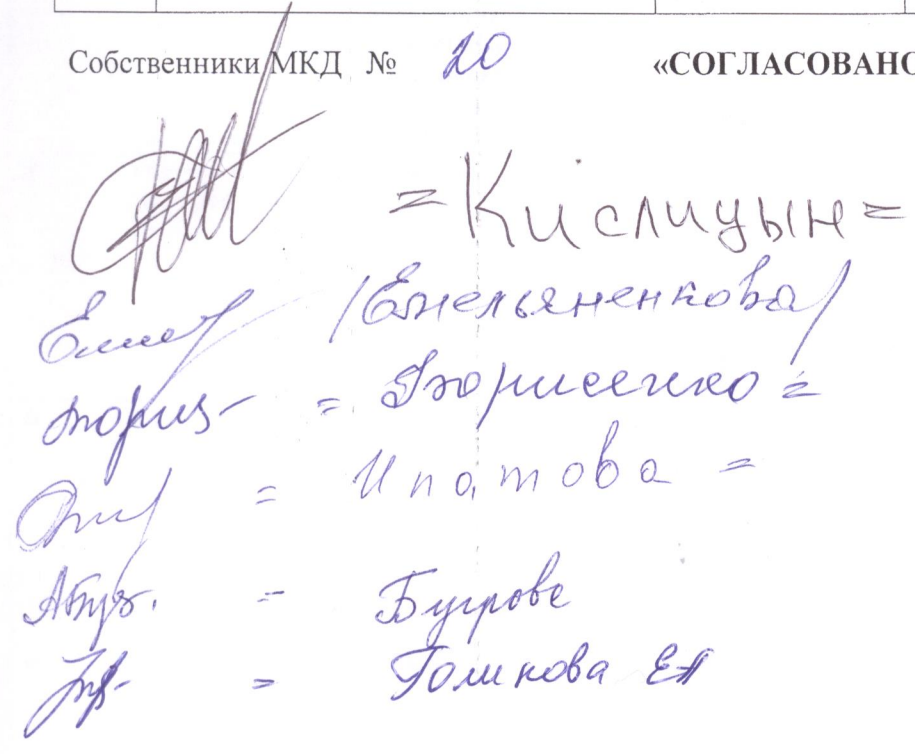 Собственники МКД № 20 «СОГЛАСОВАНО
= Кислицын =
/Емельяненкова/
= Борисенко =
= Ипатова =
= Бугрова
= Голикова ЕП